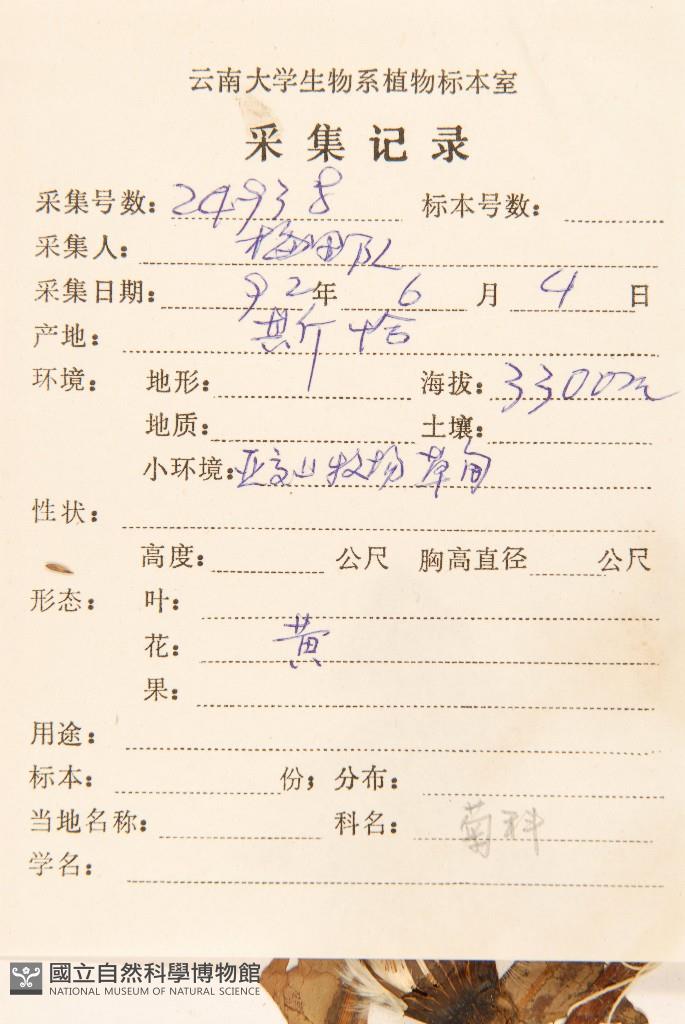 云南大学生物系植物标本室
采集记录
采集号数：24938 标本号数：
采集人：梅理队
采集日期：92年6月4日
产地：斯恰
环境： 地形： 海拔：3300m
地质： 土壤：
小环境：亚高山牧场草甸
性状：
高度： 公尺 胸高直径 公尺
形态： 叶：
花： 黄
果：
用途：
标本： 份； 分布：
当地名称： 科名： 菊科
学名：
國立自然科學博物館
NATIONAL MUSEUM OF NATURAL SCIENCE